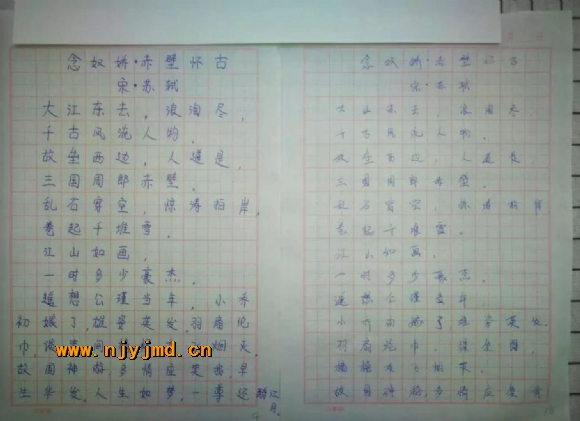 念奴娇·赤壁怀古
宋·苏轼
大江东去，浪淘尽，
千古风流人物，
故垒西边，人道是，
三国周郎赤壁，
乱石穿空，惊涛拍岸，
卷起千堆雪，
江山如画，
一时多少豪杰。
遥想公瑾当年，小乔
初嫁了，雄姿英发，羽扇纶
巾，谈笑间
www.njyjmd.cn
故国神游，多情应笑我早
生华发，人生如梦，一尊还酹江
月。
念奴娇·赤壁怀古
宋·苏轼
大江东去，浪淘尽，
千古风流人物，
故垒西边，人道是
三国周郎赤壁，
乱石穿空，惊涛拍岸
卷起千堆雪，
江山如画，
一时多少豪杰，
遥想公瑾当年
小乔初嫁了雄姿英发，
羽扇纶巾，谈笑间
故国神游，多情应笑我